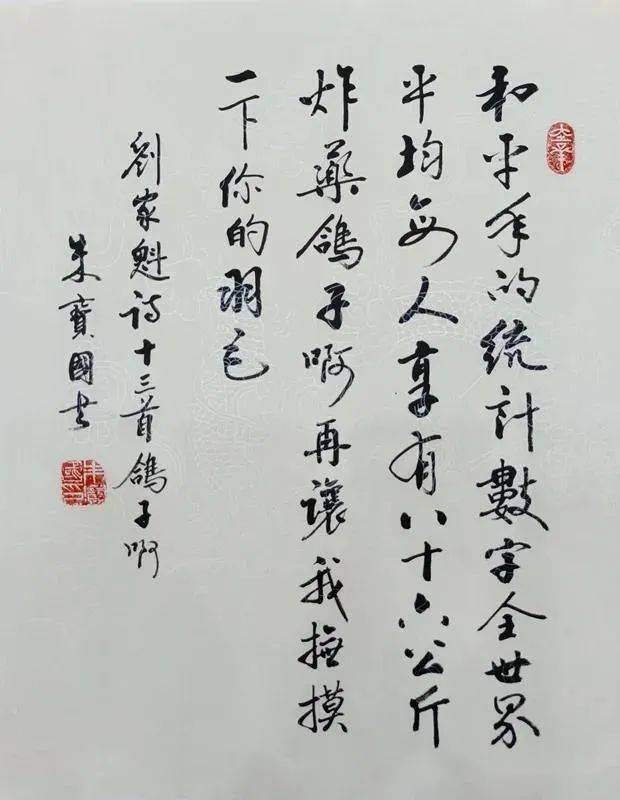 和平年的统计數字全世界
平均每人享有八十六公斤
炸藥鴿子啊再讓我撫摸
一下你的羽毛
劉家魁诗十三首鴿子啊
朱寶國书